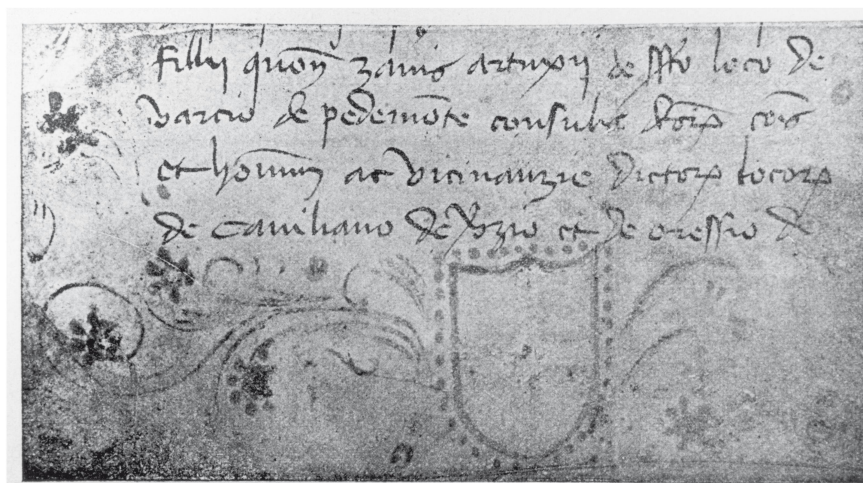 fillij quoȝ zanis artuxij de sſto loco de
varcio de pedemōte consulis dcorꝝ cōis
et hominū ac vicinanzie dictorꝝ locorꝝ
de Caviliano de et de oressio de